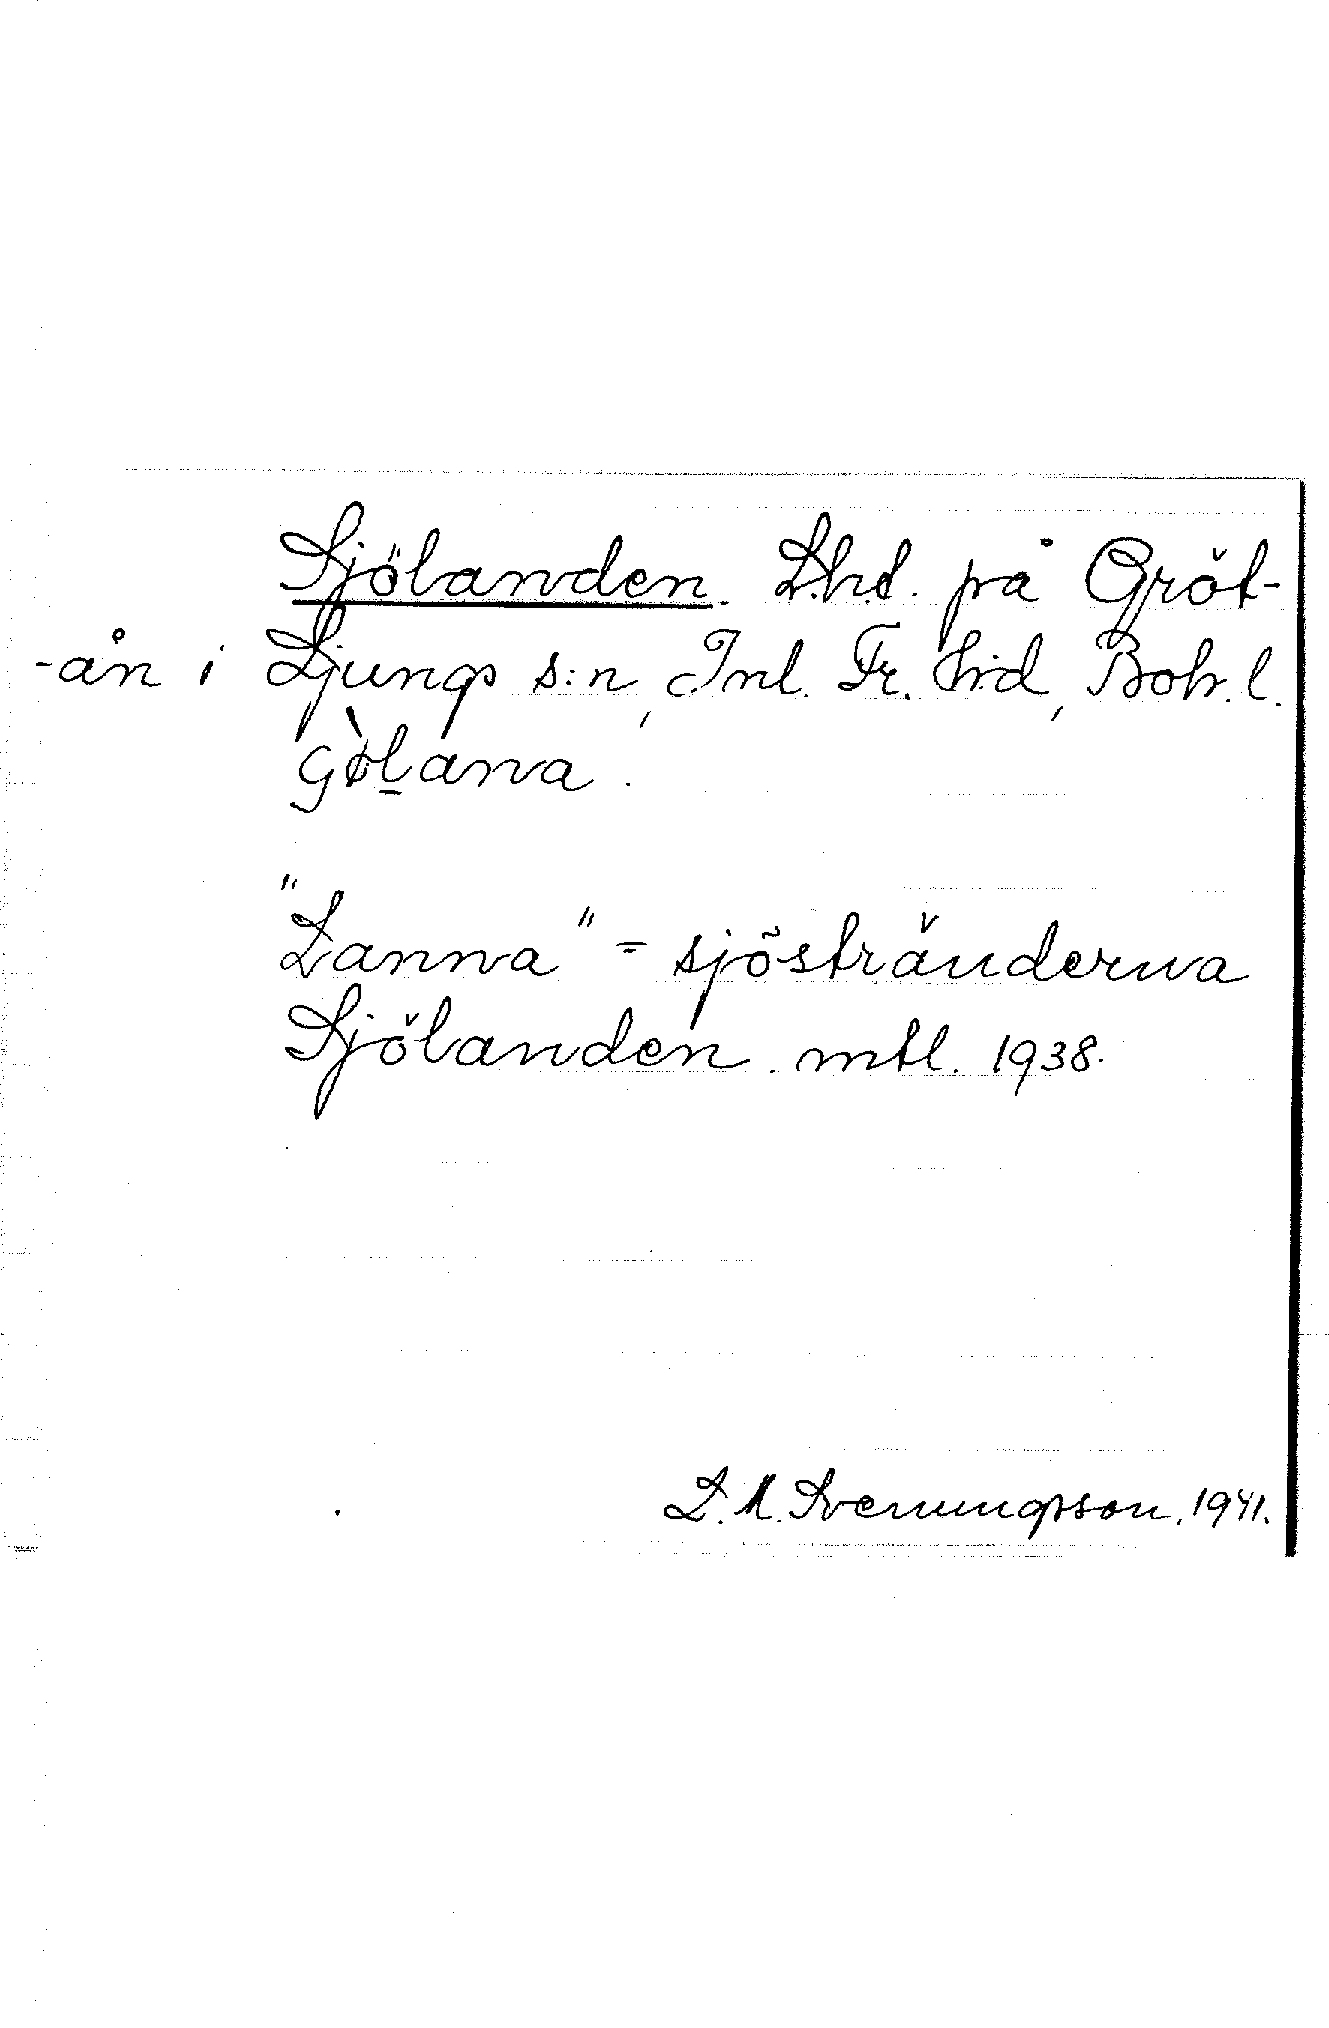 Sjölanden. L.h.t. på Gröt-
-ån i Ljungs s:n, Inl. Fr. h:d, Boh. l.
gø̀l̠ana.
"Lanna" = sjöstränderna
Sjölanden. mtl. 1938.
L. M. Svenungsson. 1941.